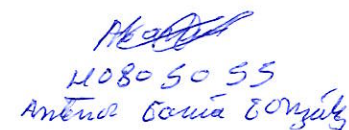 H080 50 55
Antenor García González